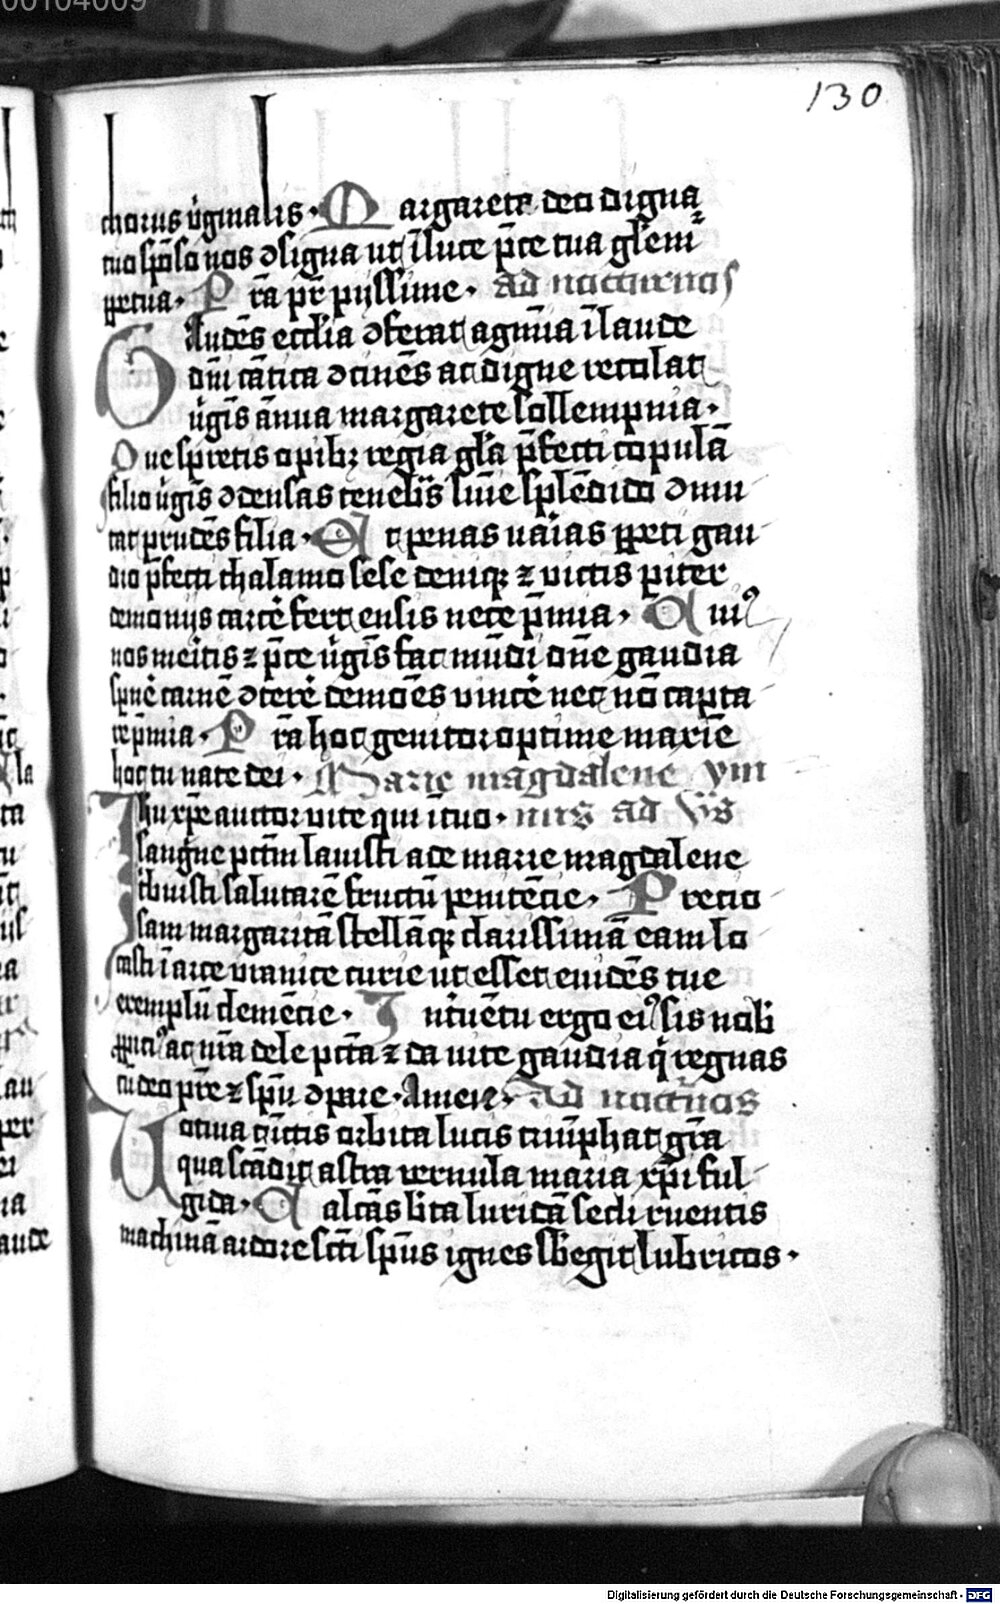 00104009
130
chorus v̓ginalis · Margarete deo digna
tuo spōso nos ꝯsigna ut ī luce p̄ce tua gl̓emꝰ
ꝑpetua · Pr̄a pr̄ pijssime · ad nocturnos
Gaudēs eccl̓ia ꝯferat agmīa ī laude
dn̄i cātica ꝯcinēs ac digne recolat
v̓gīs ānua margarete sollempnia ·
Que spretis opibꝫ regia gl̓a p̄fecti copulā
filio v̓gīs
tat prudēs filia · Et penas uarias ꝑpeti gau
dio p̄fecti thalamo sese deniqꝫ ⁊ victis
demonijs carcē fert ensis nece p̄mia · Huiꝰ
nos meritis ⁊ p̄ce v̓gīs fac mūdi dn̄e gaudia
spnē̓ carnē ꝯterē̓ demōes vincē̓ nec nō capta
re p̄mia · Pr̄a hoc genitor optime maxīe
hoc tu nate dei · Marie magdalene ym
Ihu xp̄e auctor vite qui ī tuo · nus ad v̓s
sangne pctm̄ lauisti a te marie magdalene
tbuisti salutarē fructū penitēcie · Precio
sam margaritā stellāqꝫ clarissimā eam lo
casti ī arce vranice curie ut esset euidēs tue
exemplū clemēcie · Intuētu ergo eiꝰ sis nobis
ꝓpiciꝰ ac nr̄a dele pctā ⁊ da vite gaudia q̓ regnas
cū deo pr̄e ⁊ sp̄u ꝯpare · Amen · Ad nocturnos
Uotiua cūctis orbita lucis triūphat gr̄a
qua scādit astra vernula maria xp̄i ful
gida · Calcās lita luridā secli ruentis
machinā ardore sc̄ti sp̄us ignes sbegit lubricos ·
Digitalisierung gefördert durch die Deutsche Forschungsgemeinschaft - DFG